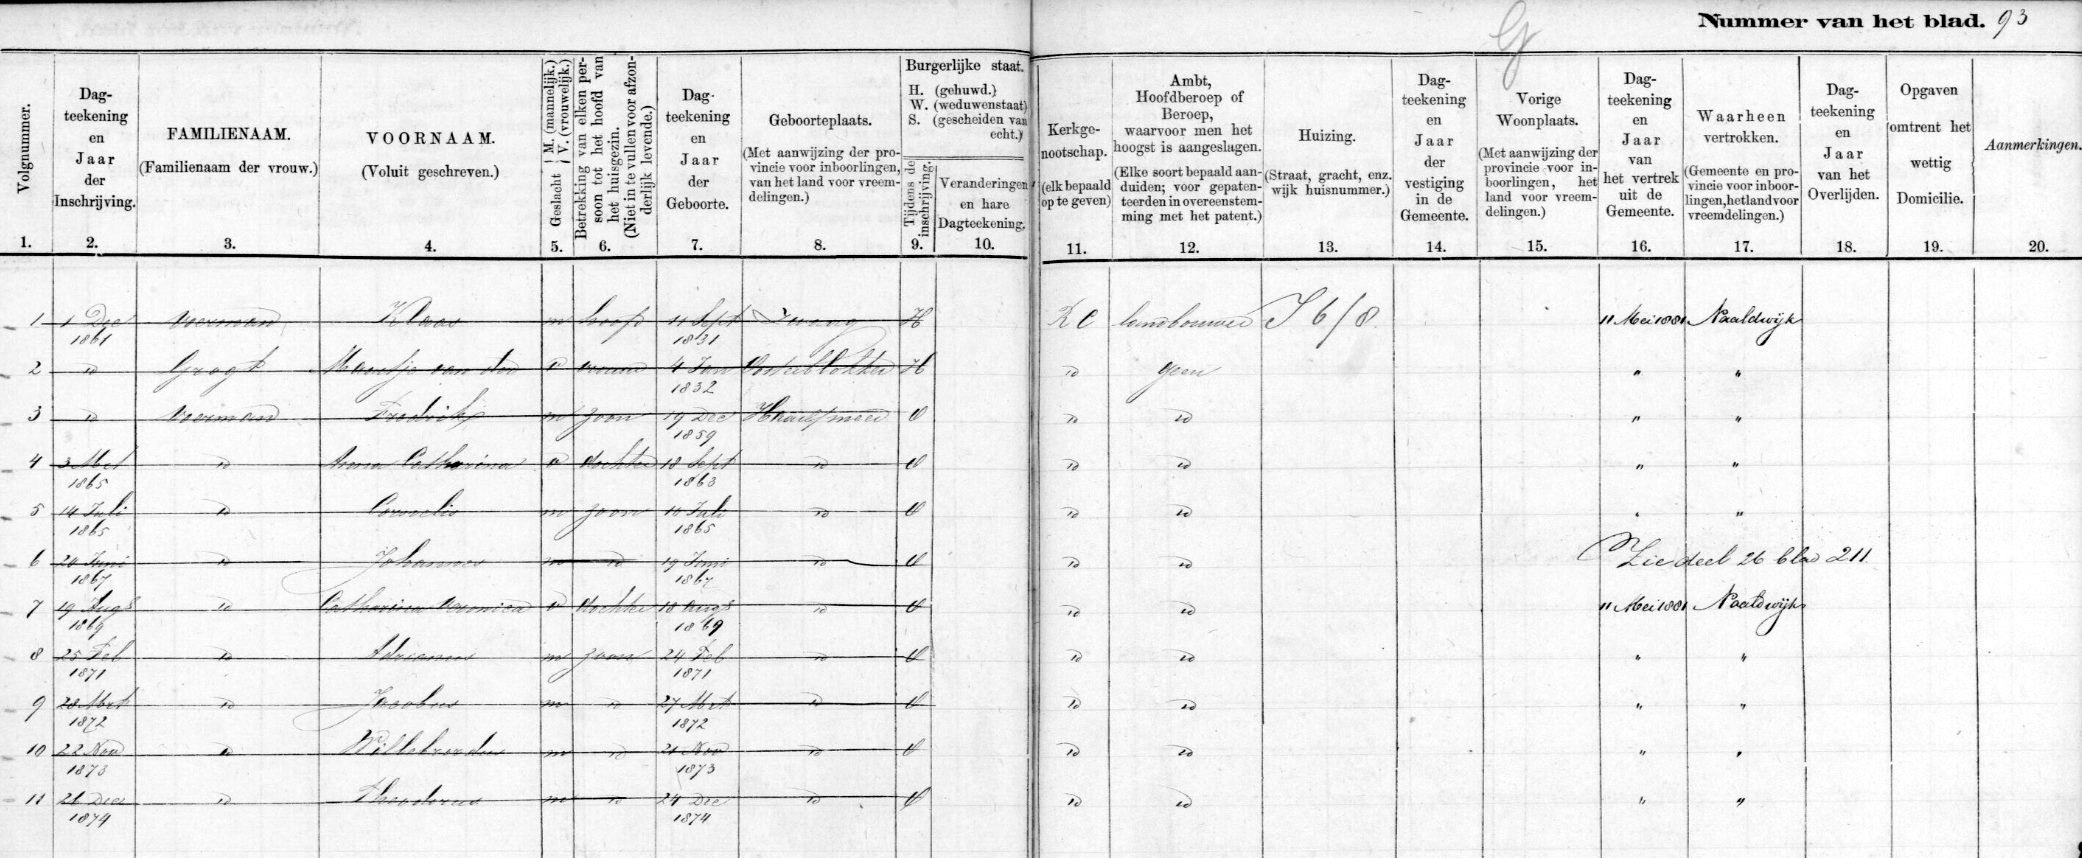 G
Nummer van het blad. 93
Volgnummer.
Dag-
teekening
en
Jaar
der
Inschrijving.
FAMILIENAAM.
(Familienaam der vrouw.)
VOORNAAM.
(Voluit geschreven.)
Geslacht { M. (mannelijk.) V. (vrouwelijk.)
Betrekking van elken per-
soon tot het hoofd van
het huisgezin.
(Niet in te vullen voor afzon-
derlijk levende.)
Dag-
teekening
en
Jaar
der
Geboorte.
Geboorteplaats.
(Met aanwijzing der pro-
vincie voor inboorlingen,
van het land voor vreem-
delingen.)
Burgerlijke staat.
H. (gehuwd.)
W. (weduwenstaat)
S. (gescheiden van
echt.)
Tijdens de
inschrijving.
Veranderingen
en hare
Dagteekening.
Kerkge-
nootschap.
(elk bepaald
op te geven)
Ambt,
Hoofdberoep of
Beroep,
waarvoor men het
hoogst is aangeslagen.
(Elke soort bepaald aan-
duiden; voor gepaten-
teerden in overeenstem-
ming met het patent.)
Huizing.
(Straat, gracht, enz.
wijk huisnummer.)
Dag-
teekening
en
Jaar
der
vestiging
in de
Gemeente.
Vorige
Woonplaats.
(Met aanwijzing der
provincie voor in-
boorlingen, het
land voor vreem-
delingen.)
Dag-
teekening
en
Jaar
van
het vertrek
uit de
Gemeente.
Waarheen
vertrokken.
(Gemeente en pro-
vincie voor inboor-
lingen, het land voor
vreemdelingen.)
Dag-
teekening
en
Jaar
van het
Overlijden.
Opgaven
omtrent het
wettig
Domicilie.
Aanmerkingen.
1. 2. 3. 4. 5. 6. 7. 8. 9. 10. 11. 12. 13. 14. 15. 16. 17. 18. 19. 20.
1 1 Dec Voerman Klaas m hoofd 11 Sept Zwaag H RC landbouwer 11 Mei 1881 Naaldwijk
1861 1831
2 id Gragt Maartje van der v vrouw 4 Jan Oosterblokker H id geen " "
1832
3 id Voerman Fredrik m zoon 19 Dec Haarl meer O id id " "
1859
4 3 Mrt id Anna Catharina v dochter 18 Sept id O id id " "
1865 1863
5 14 Juli id Cornelis m zoon 10 Juli id O id id " "
1865 1865
6 20 Juni id Johannes m id 19 Juni id O id id Zie deel 26 blad 211
1867 1867
7 19 Augs id Catharina Veronica v dochter 18 Augs id O id id 11 Mei 1881 Naaldwijk
1869 1869
8 25 Feb id Adrianus m zoon 24 Feb id O id id " "
1871 1871
9 28 Mrt id Jacobus m id 27 Mrt id O id id " "
1872 1872
10 22 Nov id Willebrordus m id 21 Nov id O id id " "
1873 1873
11 26 Dec id Theodorus m id 24 Dec id O id id " "
1874 1874